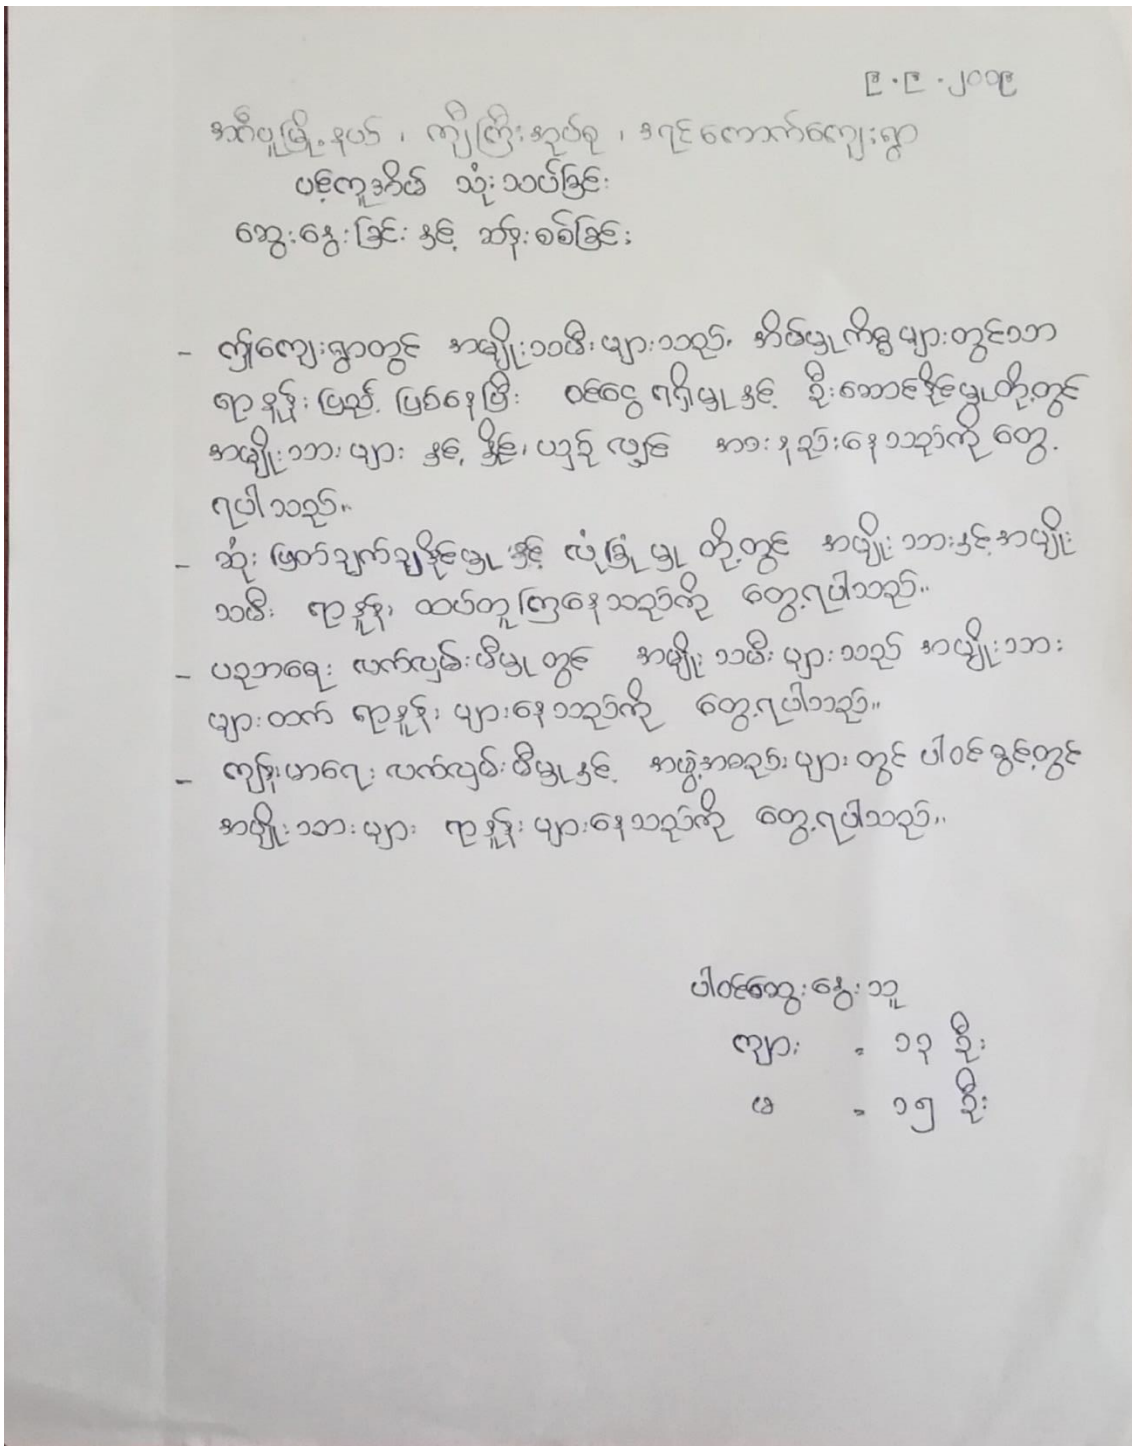 ၉.၉.၂၀၀၉
အင်္ဂပူမြို့နယ်၊ ကျီကြီးအုပ်စု၊ ဒရင်ကောက်ကျေးရွာ
ပင့်ကူအိမ် သုံးသပ်ခြင်း
ဆွေးနွေးခြင်းနှင့် ဆန်းစစ်ခြင်း
- ဤကျေးရွာတွင် အမျိုးသမီးများသည်၊ အိမ်မှုကိစ္စများတွင်သာ
ရာနှုန်းပြည့် ဖြစ်နေပြီး ဝင်ငွေရရှိမှုနှင့် ဦးဆောင်နိုင်မှုတို့တွင်
အမျိုးသားများ နှင့် နှိုင်းယှဉ်လျှင် အားနည်းနေသည်ကို တွေ့
ရပါသည်။
- ဆုံးဖြတ်ချက်ချနိုင်မှုနှင့် လုံခြုံမှု တို့တွင် အမျိုးသားနှင့်အမျိုး
သမီး ရာနှုန်း ထပ်တူကြနေသည်ကို တွေ့ရပါသည်။
- ပညာရေး လက်လှမ်းမီမှုတွင် အမျိုးသမီးများသည် အမျိုးသား
များထက် ရာနှုန်းများနေသည်ကို တွေ့ရပါသည်။
- ကျန်းမာရေး လက်လှမ်းမီမှုနှင့် အဖွဲ့အစည်းများတွင် ပါဝင်ခွင့်တွင်
အမျိုးသားများ ရာနှုန်းများနေသည်ကို တွေ့ရပါသည်။
ပါဝင်ဆွေးနွေးသူ
ကျား = ၁၃ ဦး
မ = ၁၅ ဦး